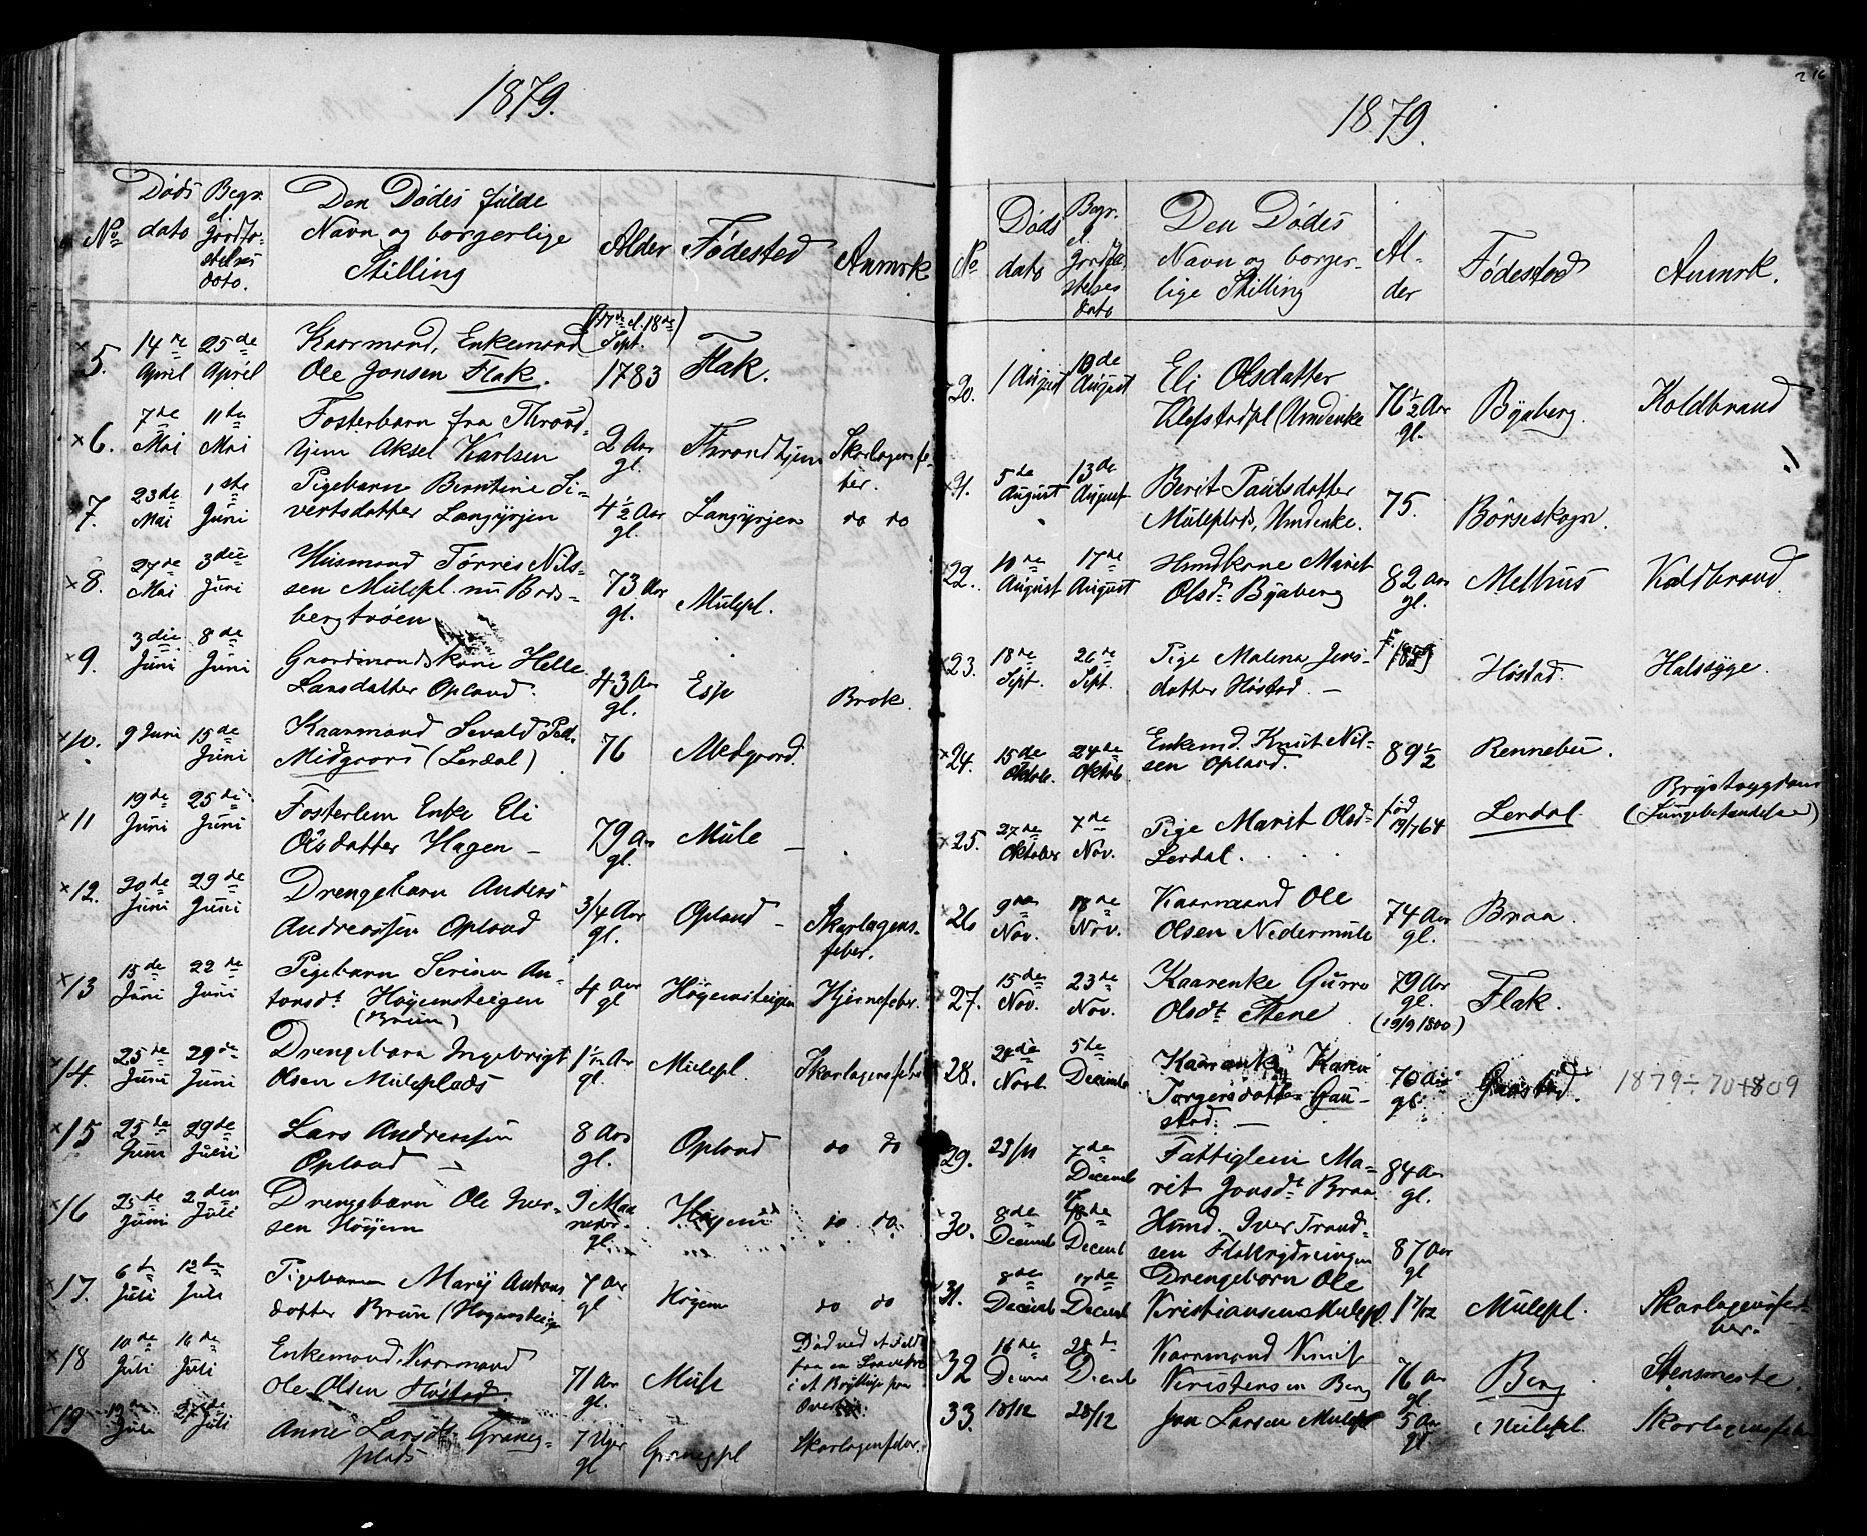 1879.
No
Døds
dato
Begr.
el.
Jordfæ-
stelses
dato.
Den Dødes fulde
Navn og borgerlige
Stilling
Alder
Fødested
Anmrk
5. 14de April 25de April Kaarmand, Enkemand (17de el. 18de) Sept. Flak.
Ole Jonsen Flak. 1783
6. 7de Mai 11te Mai Fosterbarn fra Thrond-
hjem Aksel Karlsen 2 Aar gl. Throndhjem Skarlagensfe-
ber.
7. 23de Mai 1ste Juni Pigebarn Berntine Si-
vertsdatter Langÿrjen 4 1/2 Aar gl. Langÿrjen do do
8. 27de Mai 3die Juni Husmand Tørris Nils-
sen Mulepl. nu Bods-
bergtrøen 73 Aar gl. Mulepl.
9. 3die Juni 8de Juni Gaardmandskone Helle
Larsdatter Opland. 43 Aar gl. Esp Brok.
10. 9 Juni 15de Juni Kaarmand Sevald Ped.
Midgaard (Lerdal) 76 Medgaard.
11 19de Juni 25de Juni Fosterlem Enke Eli
Olsdatter Hagen – 79 Aar gl. Mule –
12. 20de Juni 29de Juni Drengebarn Anders
Andreassen Opland 3/4 Aar gl. Opland – Skarlagens-
feber.
13 15de Juni 22de Juni Pigebarn Serina An-
tonsdt Høgemsteigen
(Bruun) 4 Aar gl Høgemsteigen Hjernefeber.
14. 25de Juni 29de Juni Drengebarn Ingebrigt
Olsen Muleplads Aar gl. Mulepl. Skarlagensfeber
15 25de Juni 29de Juni Lars Andreassen
Opland – 8 Aar gl. Opland do do
16 25de Juni 2den Juli Drengebarn Ole Iver-
sen Høgem 9 Maa-
neder gl. Høgem do do.
17. 6te Juli 12te Juli Pigebarn Marij Antons
datter Bruun (Høgemsteigen 7 Aar gl Høgem do do
18 10de Juli 16de Juli Enkemand, Kaarmand
Ole Olsen Høstad. 71 Aar gl. Mule Død ved et Fald
fra en
i et
19 19de Juli 27de Juli Anne Larsdt. Graneg-
plads 7 Uger gl Granegpl Skarlagensfeber.
216
1879.
No
Døds
dato
Begr.
el.
Jordfæ-
stelses
dato
Den Dødes
Navn og borger-
lige Stilling
Al-
der
Fødested
Anmrk.
20. 1 August 10de August Eli Olsdatter
Klefstadpl (Umdenke 76 1/2 Aar gl. Bÿaberg. Koldbrand
21. 5de August 13de August Berit Paulsdatter
Muleplads, Umdenke. 75. Børseskogn.
22. 10de August 17de August Hmdkone Marit
Olsdt Bÿaberg 82 Aar gl. Melhus Koldbrand.
23. 18de Sept. 26de Sept. Pige Malena Jens-
datter Høstad. – Høstad. Halssÿge.
24. 15de Oktob. 24de Oktob. Enkemd. Knut Nil-
sen Opland. 89 1/2 Rennebu.
25. 27de Oktober 7de Nov. Pige Marit Olsd-
Lerdal. fød 19/7 64 Lerdal. Brÿstsÿgdom
(Lungebetændelse)
26 9de Nov. Nov. Kaarmand Ole
Olsen Nedermule 74 Aar gl. Braa.
27. 15de Nov. 23de Nov. Kaarenke Gurro
Olsdt. Stene 79 Aar gl. (19/9 1800) Flak.
28. Novb. 5te Decemb Kaarenke Karen
Torgersdatter Gau-
stad. – 70 Aar gl. Gaustad. 1879 ÷ 70 + 809
29. 29/11 7de Decemb Fattiglem Ma-
rit Jonsdt Braa 84 Aar gl.
30. 8de Decemb Decemb Husmd. Iver Trond-
sen Flakrydningen 87 Aar gl
31. 8de Decemb 17de Decemb Drengebarn Ole
Kristiansen Mulepl. 1 7/12 Mulepl. Skarlagensfe-
ber.
32 16de Decem 28de Decemb Kaarmand Knut
Kristensen Berg 76 Aar gl. Berg Stensmerte.
33. 18/12 28/12 Jon Larsen Mulepl 5 Aar gl. Mulepl. Skarlagensfeb